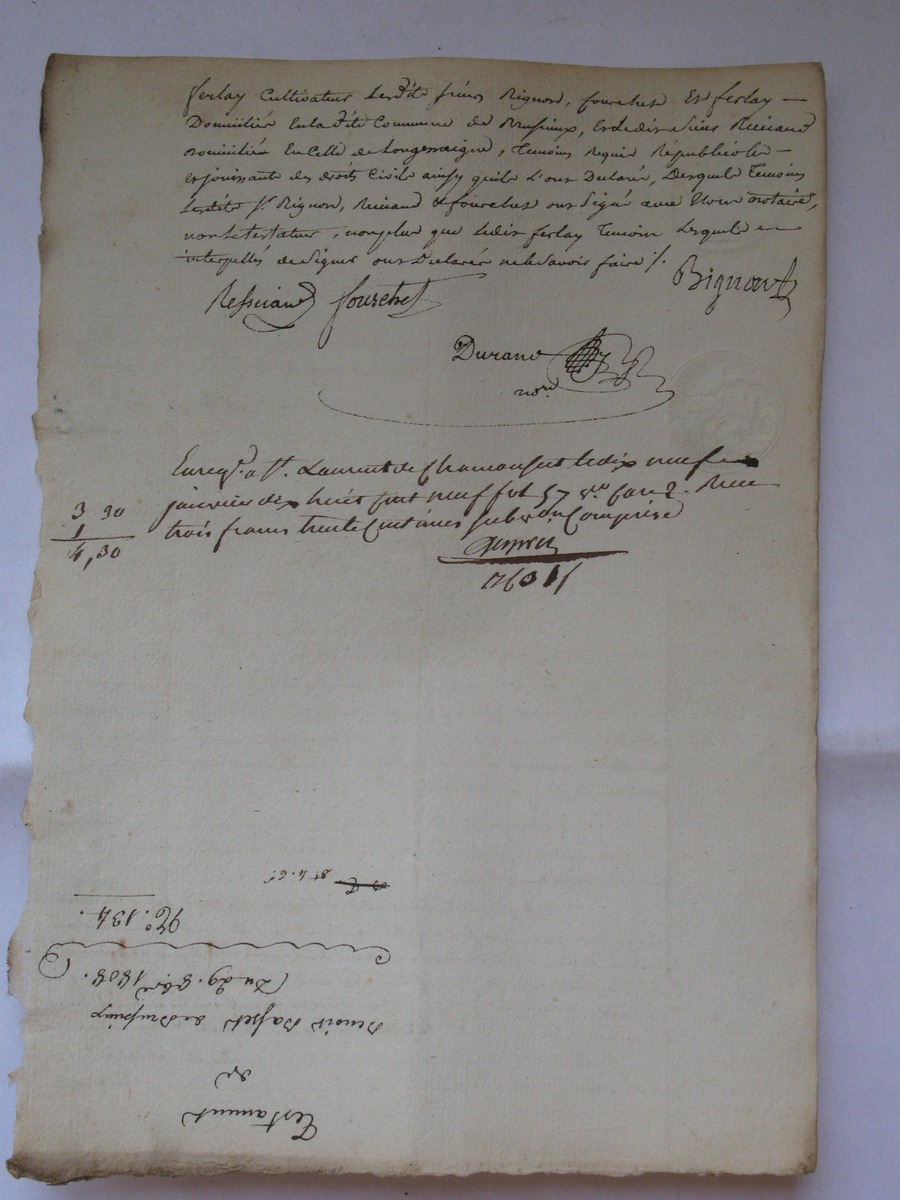 ferlay Cultivateur Lesdits sieurs Rignon, fourchet Et ferlay —
Domiciliés En ladite Commune de Brussieux, Et Ledit sieur
domicilié En Celle de Longessaigne, Temoins Requis Républicole —
Et jouissants des droits Civils ainsy quils L'ont Declaré, Desquels Temoins
Lesdits Srs Rignon, & fourchet ont signé avec Nous notaire,
non Le testateur, non plus que Ledit ferlay Temoin Lesquels —
interpellés de signer ont Declaré ne le savoir faire /.
Bignon
fourchet
Durand
nore
Enregé. a St. Laurent de Chamousset le dix neuf
janvier dix huit cent neuf fol 57 vo Case 2. Recu
trois francs trente Centimes subvon Comprise
3 30
1
4,30
No. 134.
(Du 29. 8bre 1808.
Benoit Basset de Brussieux
de
Testament